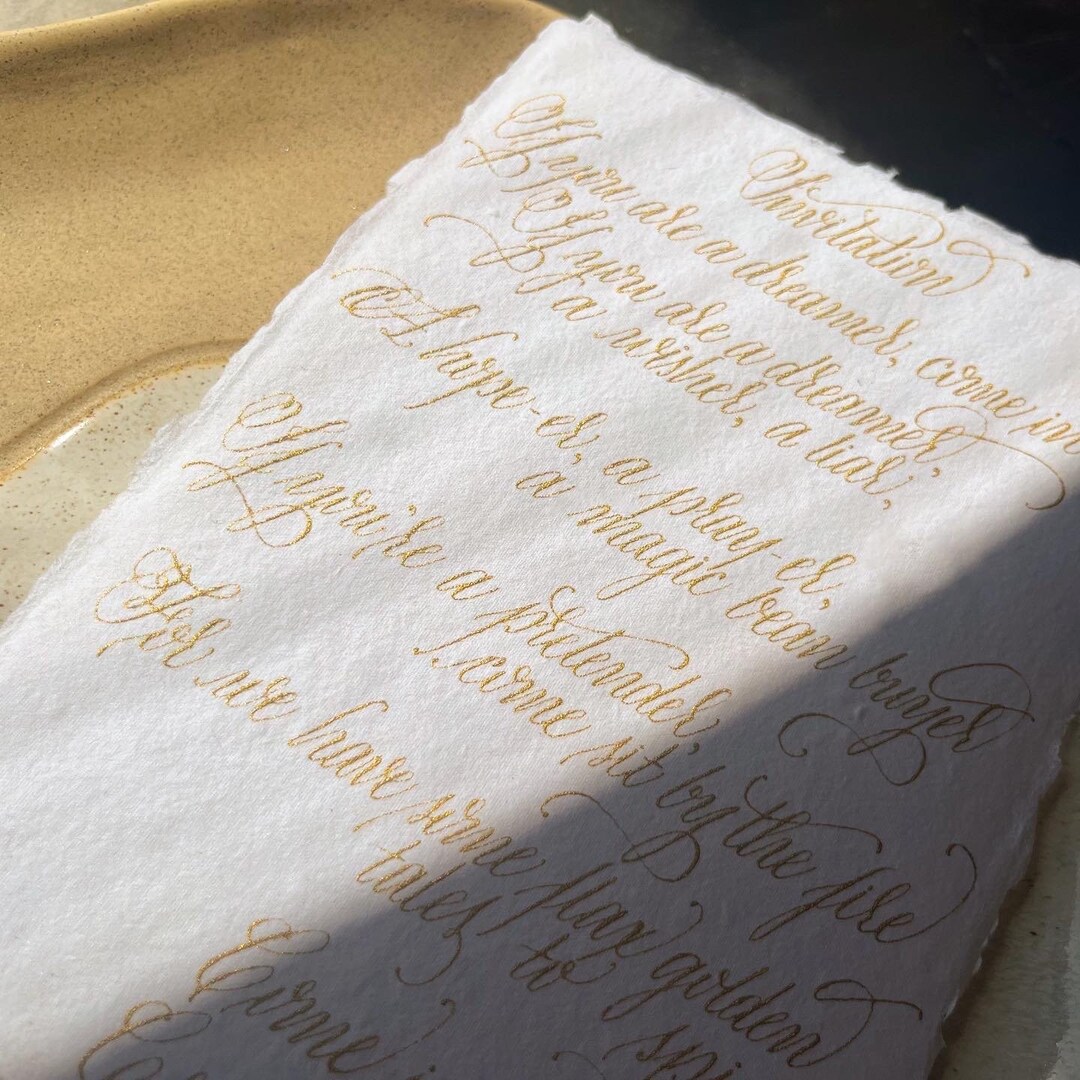 Invitation
If you are a dreamer, come in
If you are a dreamer
a wisher, a liar,
A hope-er, a pray-er,
a magic bean buyer
If you're a pretender,
come sit by the fire
For we have some flax golden
tales to spi
Come i